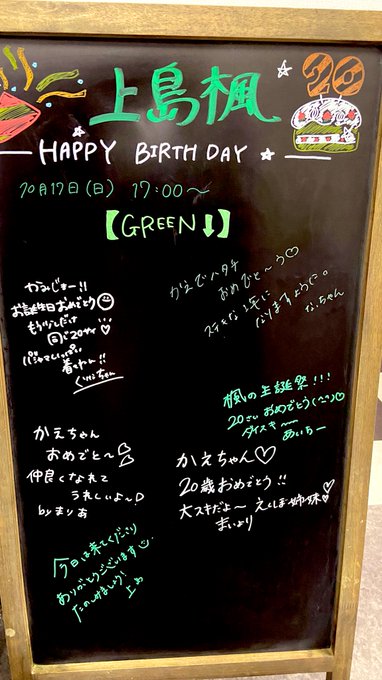 上島楓
20
HAPPY BIRTHDAY
10月17日(日) 17:00〜
【GREEN↓】
かみじまー!!
お誕生日おめでとう
もう少しだけ
同じ20才!!
着てね!!
くりなちゃん
かえでハタチ
おめでと〜う♡
ステキな1年に
なりますように。
なっちゃん
楓の生誕祭!!!
20さいおめでとう(^^)♡
ダイスキ〜
あいちー
かえちゃん
おめでと〜
仲良くなれて
うれしいよ〜
byまりあ
かえちゃん♡
20歳おめでとう!!
大スキだよ〜 えくしま姉妹
まいより
今日は来てくださり
ありがとうございます
たのしみましょう